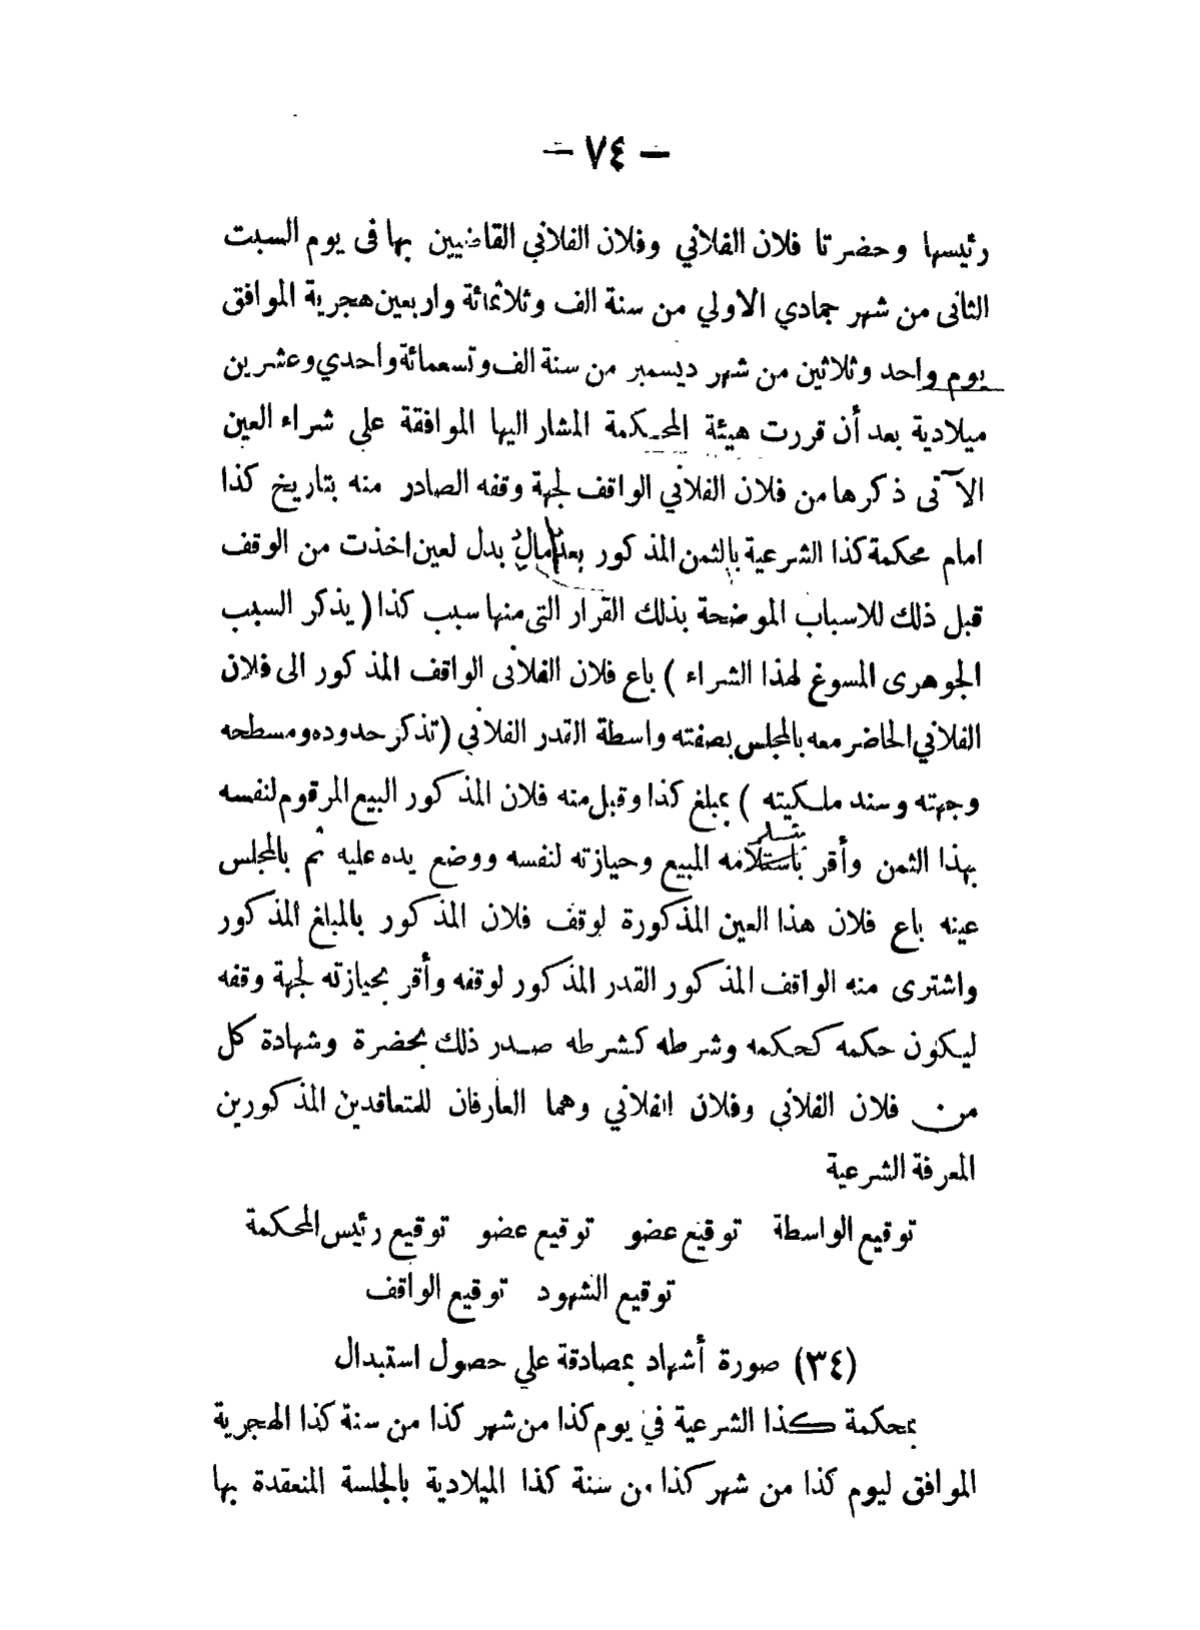 — ٧٤ —
رئيسها وحضرتا فلان الفلاني وفلان الفلاني القاضيين بها فى يوم السبت
الثانى من شهر جمادي الاولي من سنة الف وثلاثمائة واربعين هجرية الموافق
يوم واحد وثلاثين من شهر ديسمبر من سنة الف وتسعمائة واحدي وعشرين
ميلادية بعد أن قررت هيئة المحكمة المشار اليها الموافقة على شراء العين
الآتى ذكرها من فلان الفلاني الواقف لجهة وقفه الصادر منه بتاريخ كذا
امام محكمة كذا الشرعية بالثمن المذكور بعد مال بدل لعين اخذت من الوقف
قبل ذلك للاسباب الموضحة بذلك القرار التى منها سبب كذا ( يذكر السبب
الجوهرى المسوغ لهذا الشراء ) باع فلان الفلانى الواقف المذكور الى فلان
الفلاني الحاضر معه بالمجلس بصفته واسطة القدر الفلاني (تذكر حدوده ومسطحه
وجهته وسند ملكيته ) بمبلغ كذا وقبل منه فلان المذكور البيع المرقوم لنفسه
بهذا الثمن وأقر باستلامه المبيع وحيازته لنفسه ووضع يده عليه ثم بالمجلس
عينه باع فلان هذا العين المذكورة لوقف فلان المذكور بالمبلغ المذكور
واشترى منه الواقف المذكور القدر المذكور لوقفه وأقر بحيازته لجهة وقفه
ليكون حكمه كحكمه وشرطه كشرطه صدر ذلك بحضرة وشهادة كل
من فلان الفلاني وفلان الفلاني وهما العارفان للمتعاقدين المذكورين
المعرفة الشرعية
توقيع الواسطة توقيع عضو توقيع عضو توقيع رئيس المحكمة
توقيع الشهود توقيع الواقف
(٣٤) صورة أشهاد بمصادقة علي حصول استبدال
بمحكمة كذا الشرعية في يوم كذا من شهر كذا من سنة كذا الهجرية
الموافق ليوم كذا من شهر كذا من سنة كذا الميلادية بالجلسة المنعقدة بها